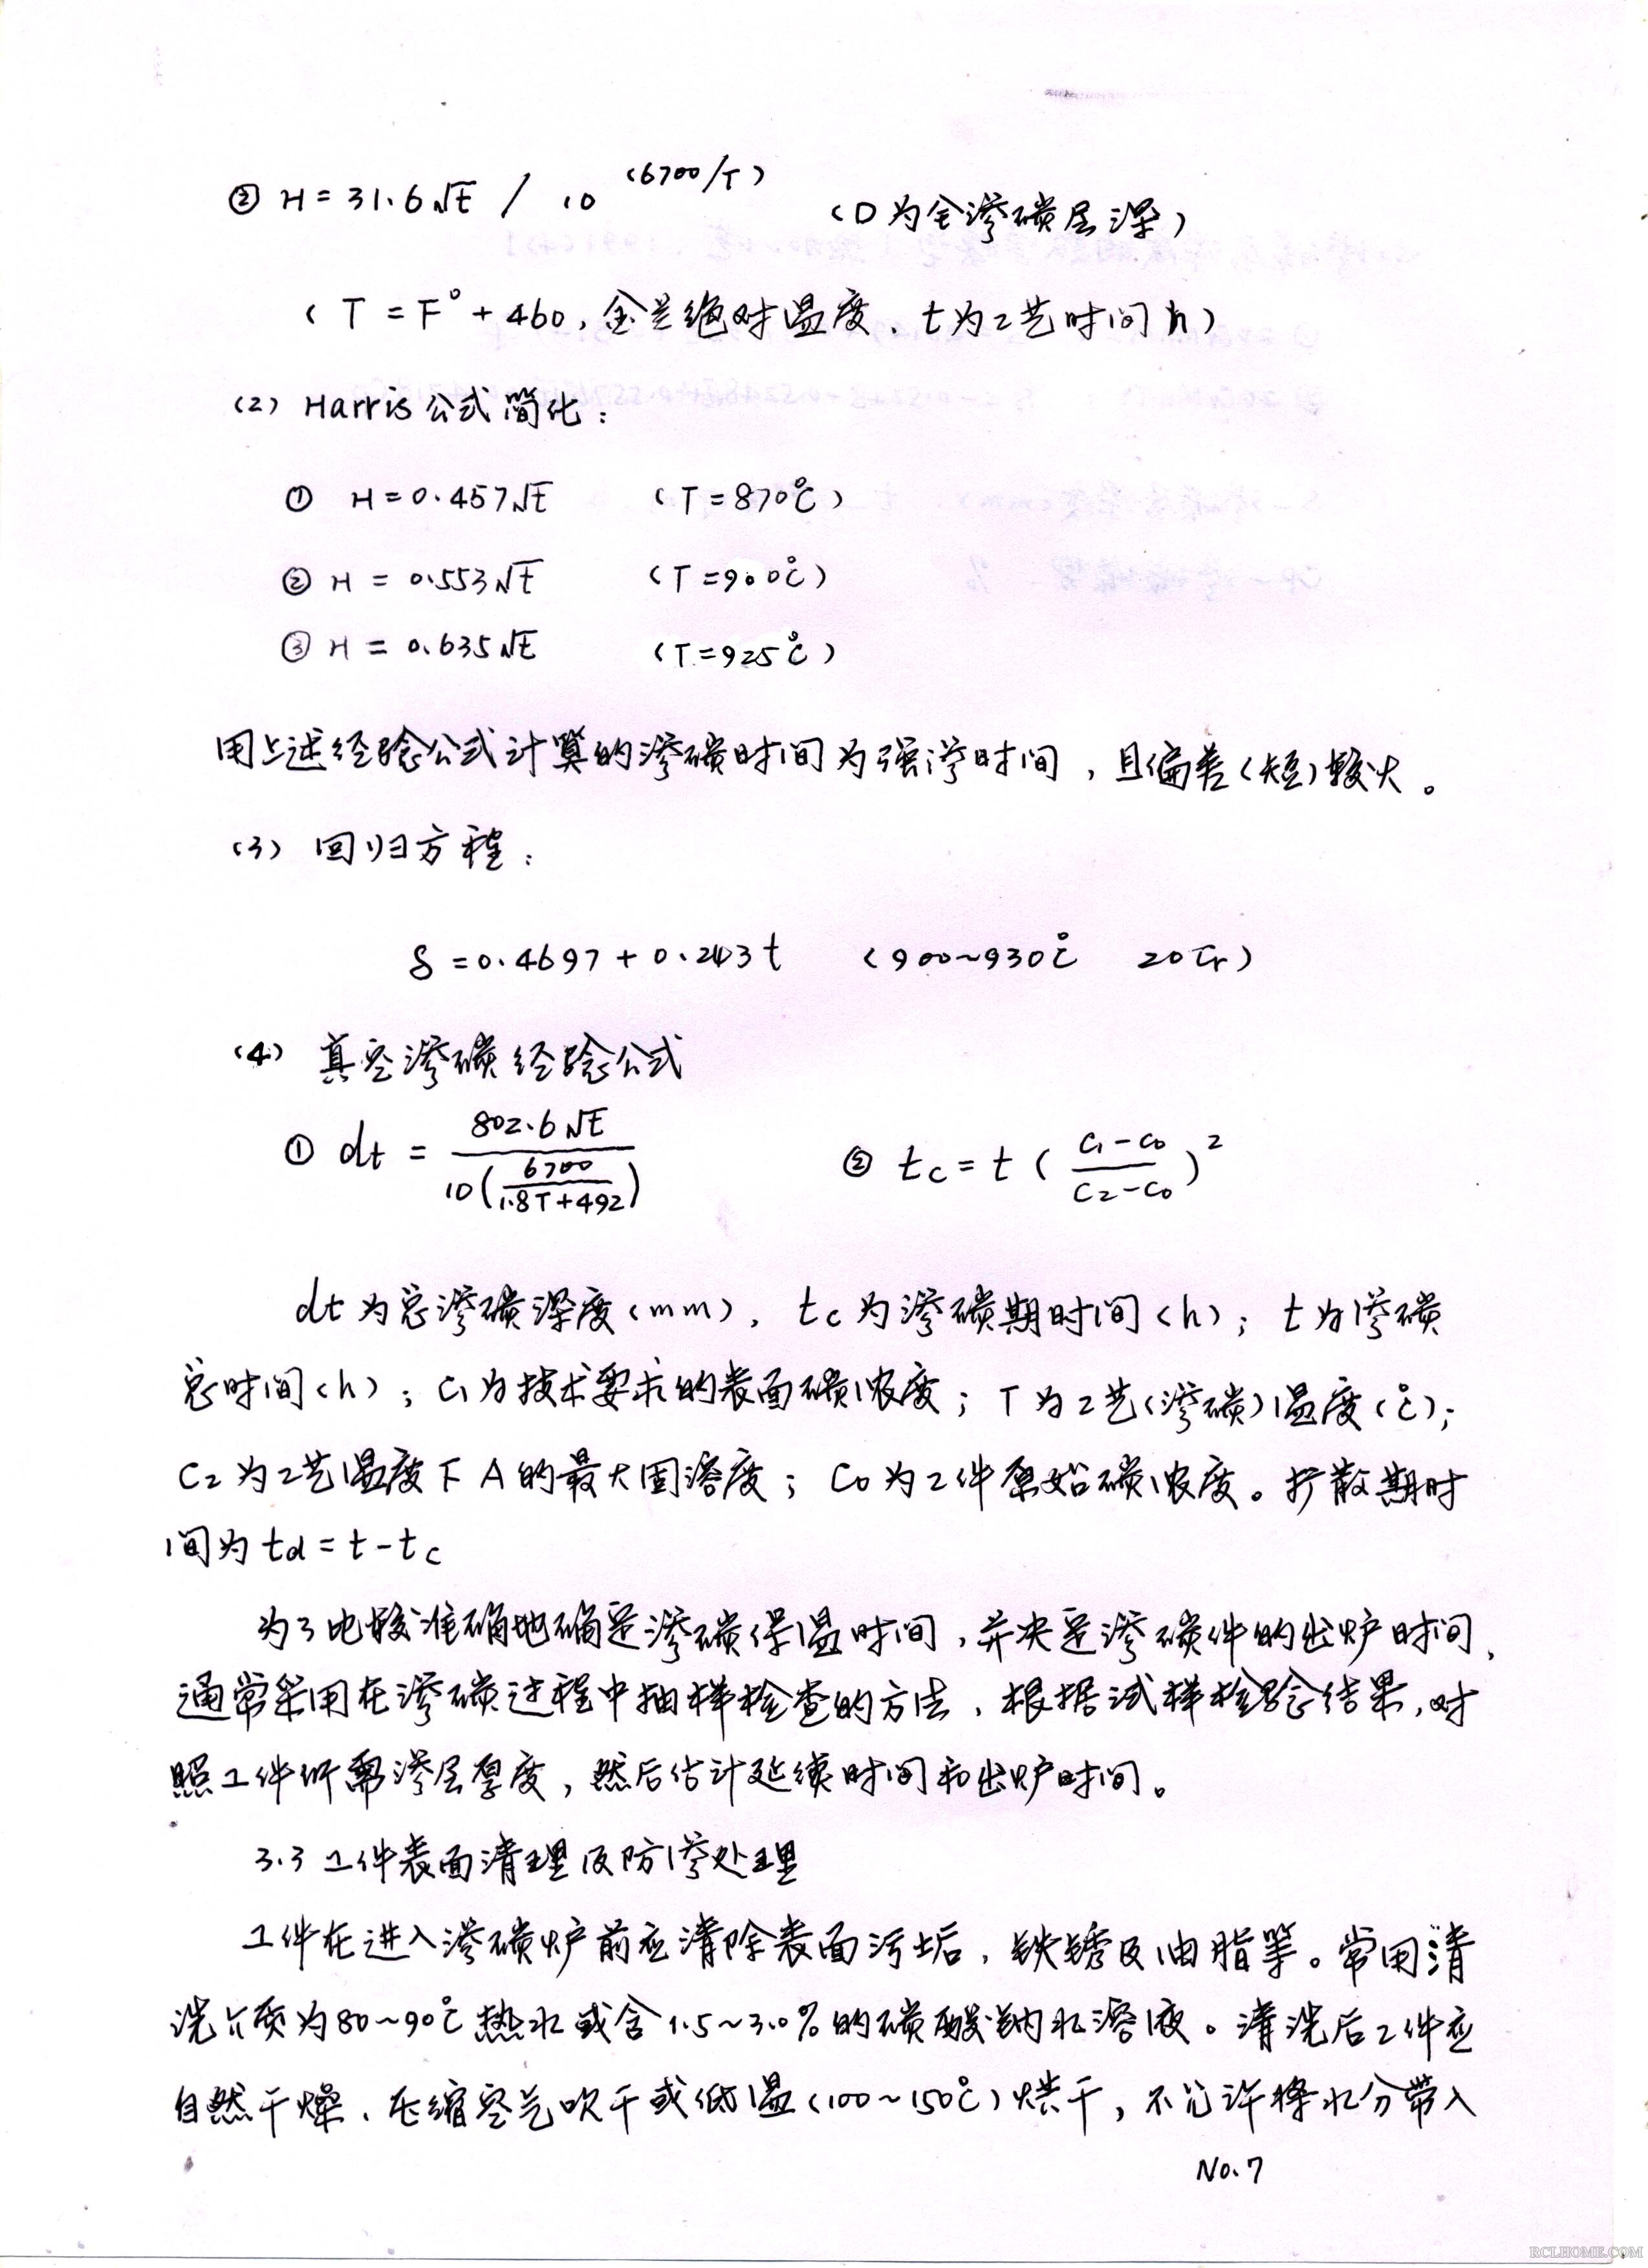 ② H=31.6√t / 10^(6700/T) (D为全渗碳层深)
(T=F°+460,金兰绝对温度、t为工艺时间h)
(2) Harris公式简化:
① H=0.457√t (T=870℃)
② H=0.553√t (T=900℃)
③ H=0.635√t (T=925℃)
用上述经验公式计算的渗碳时间为强渗时间,且偏差(短)较大。
(3) 回归方程:
δ=0.4697+0.243t (900~930℃ 20Cr)
(4) 真空渗碳经验公式
① dt = 802.6√t / 10(6700/(1.8T+492)) ② tc=t((C1-C0)/(C2-C0))²
dt为总渗碳深度(mm),tc为渗碳期时间(h);t为渗碳
总时间(h);C1为技术要求的表面碳浓度;T为工艺(渗碳)温度(℃);
C2为工艺温度下A的最大固溶度;C0为工件原始碳浓度。扩散期时
间为td=t-tc
为了比较准确地确定渗碳保温时间,并决定渗碳件的出炉时间,
通常采用在渗碳过程中抽样检查的方法,根据试样检验结果,对
照工件所需渗层厚度,然后估计延续时间和出炉时间。
3.3 工件表面清理及防渗处理
工件在进入渗碳炉前应清除表面污垢,铁锈及油脂等。常用清
洗介质为80~90℃热水或含1.5~3.0%的碳酸钠水溶液。清洗后工件应
自然干燥、压缩空气吹干或低温(100~150℃)烘干,不允许将水分带入
No.7
RCLHOME.COM